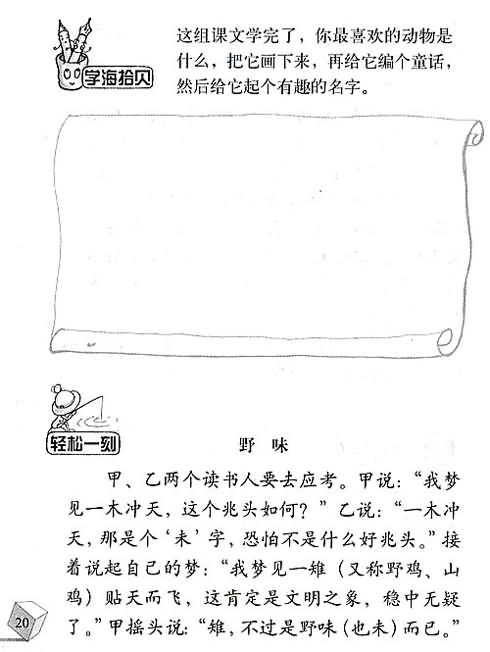 这组课文学完了，你最喜欢的动物是
什么，把它画下来，再给它编个童话，
然后给它起个有趣的名字。
学海拾贝
轻松一刻
野味
甲、乙两个读书人要去应考。甲说：“我梦
见一木冲天，这个兆头如何？”乙说：“一木冲
天，那是个‘未’字，恐怕不是什么好兆头。”接
着说起自己的梦：“我梦见一雉（又称野鸡、山
鸡）贴天而飞，这肯定是文明之象，稳中无疑
了。”甲摇头说：“雉，不过是野味（也未）而已。”
20